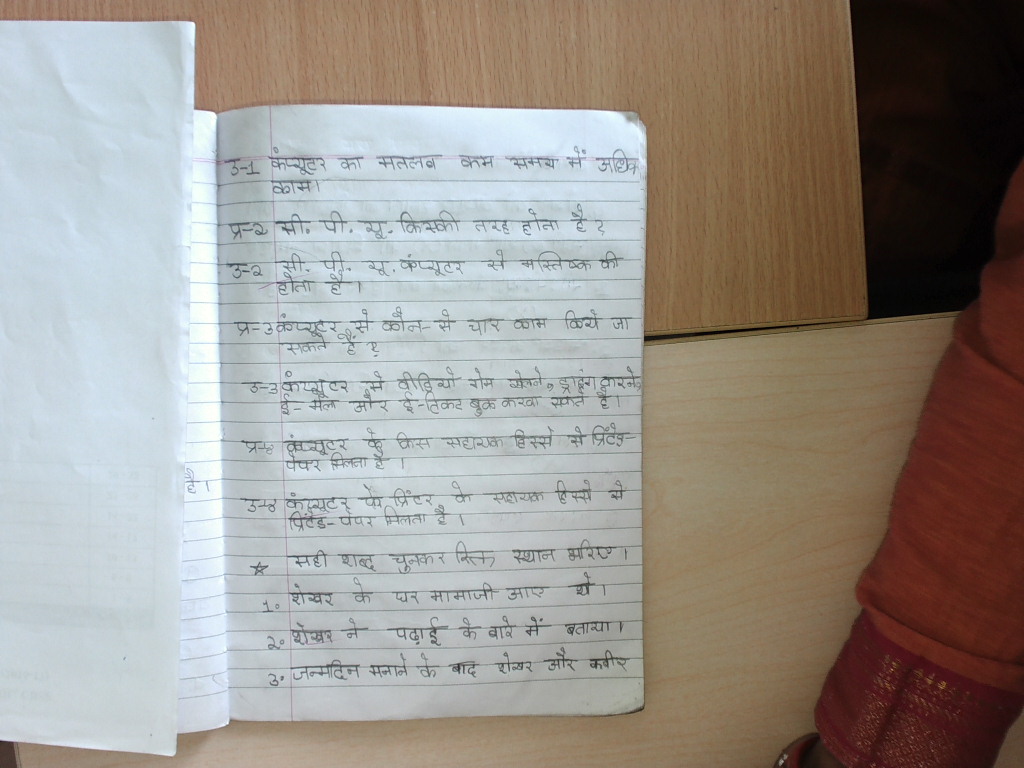 उ-1 कंप्यूटर का मतलब कम समय में अधिक
काम।
प्र-2 सी. पी. यू. किसकी तरह होता है?
उ-2 सी. पी. यू. कंप्यूटर से मस्तिष्क की
होता है।
प्र-3 कंप्यूटर से कौन-से चार काम किये जा
सकते हैं?
उ-3 कंप्यूटर से वीडियो गेम खेलने, ड्राइंग करने,
ई-मेल और ई-टिकट बुक करवा सकते है।
प्र-४ कंप्यूटर के किस सहायक हिस्से से प्रिंटेड-
पेपर मिलता है।
है।
उ-४ कंप्यूटर पे प्रिंटर के सहायक हिस्से से
प्रिंटेड-पेपर मिलता है।
☆ सही शब्द चुनकर रिक्त स्थान भरिए।
1. शेखर के घर मामाजी आए थे।
2. शेखर ने पढ़ाई के बारे में बताया।
3. जन्मदिन मनाने के बाद शेखर और कबीर